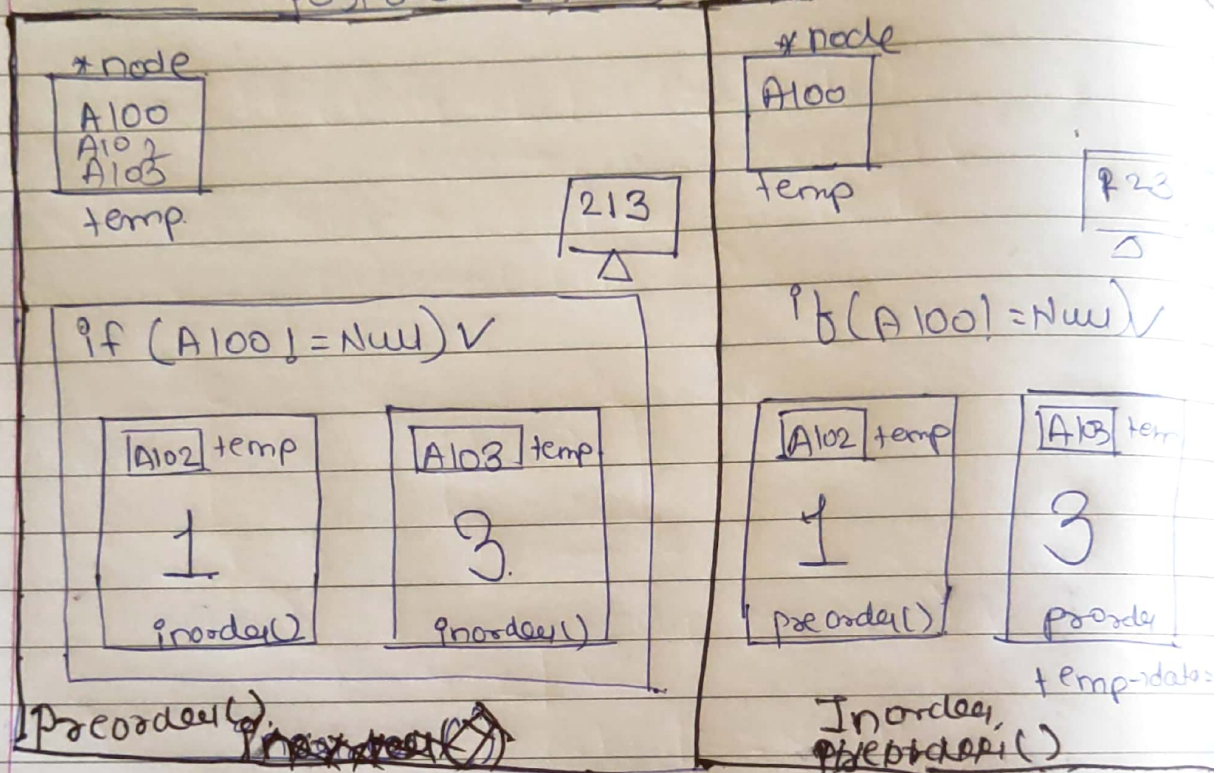 *node
A100
A102
A103
temp.
213
if (A100!=Null)✓
A102 temp
1
inorder()
A103 temp
3.
inorder()
Preorder().
*node
A100
temp
if (A100!=Null)✓
A102 temp
1
preorder()
A103 tem
3
prorde
temp->data=
Inorder,